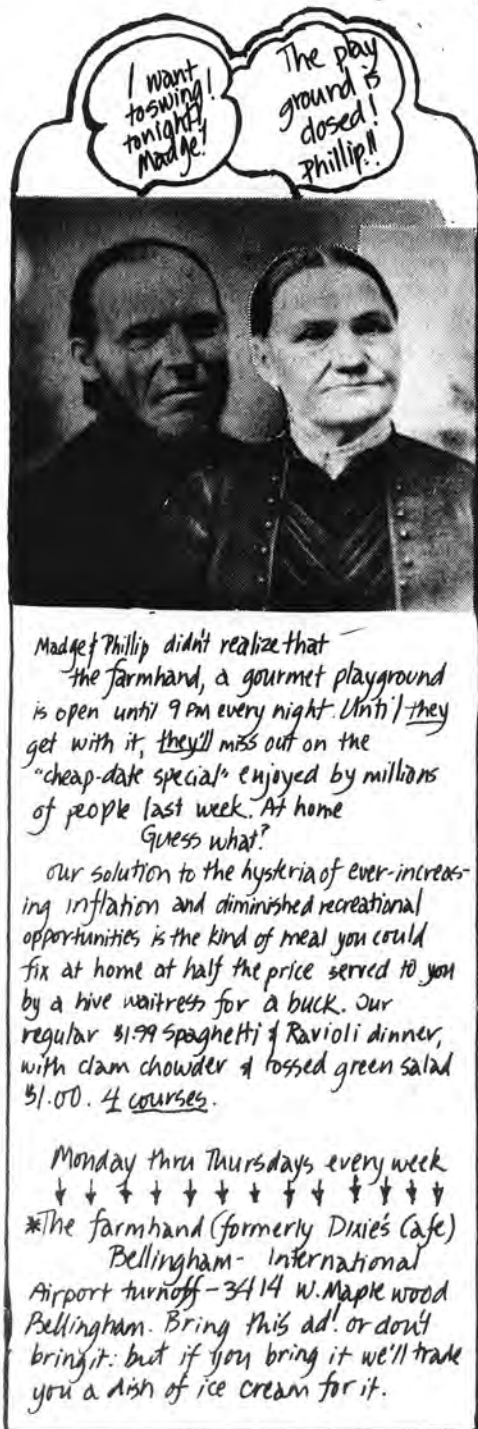 I want
to swing!
tonight!
Madge!
The play
ground is
closed!
Phillip!!
Madge & Phillip didn't realize that
the farmhand, a gourmet playground
is open until 9 PM every night. Until they
get with it, they'll miss out on the
"cheap-date special" enjoyed by millions
of people last week. At home
Guess what?
our solution to the hysteria of ever-increas-
ing inflation and diminished recreational
opportunities is the kind of meal you could
fix at home at half the price served to you
by a live waitress for a buck. Our
regular $1.99 Spaghetti & Ravioli dinner,
with clam chowder & tossed green salad
$1.00. 4 courses.
Monday thru Thursdays every week
*The farmhand (formerly Dixie's Cafe)
Bellingham- International
Airport turnoff - 3414 W. Maplewood
Bellingham. Bring this ad! or don't
bring it: but if you bring it we'll trade
you a dish of ice cream for it.